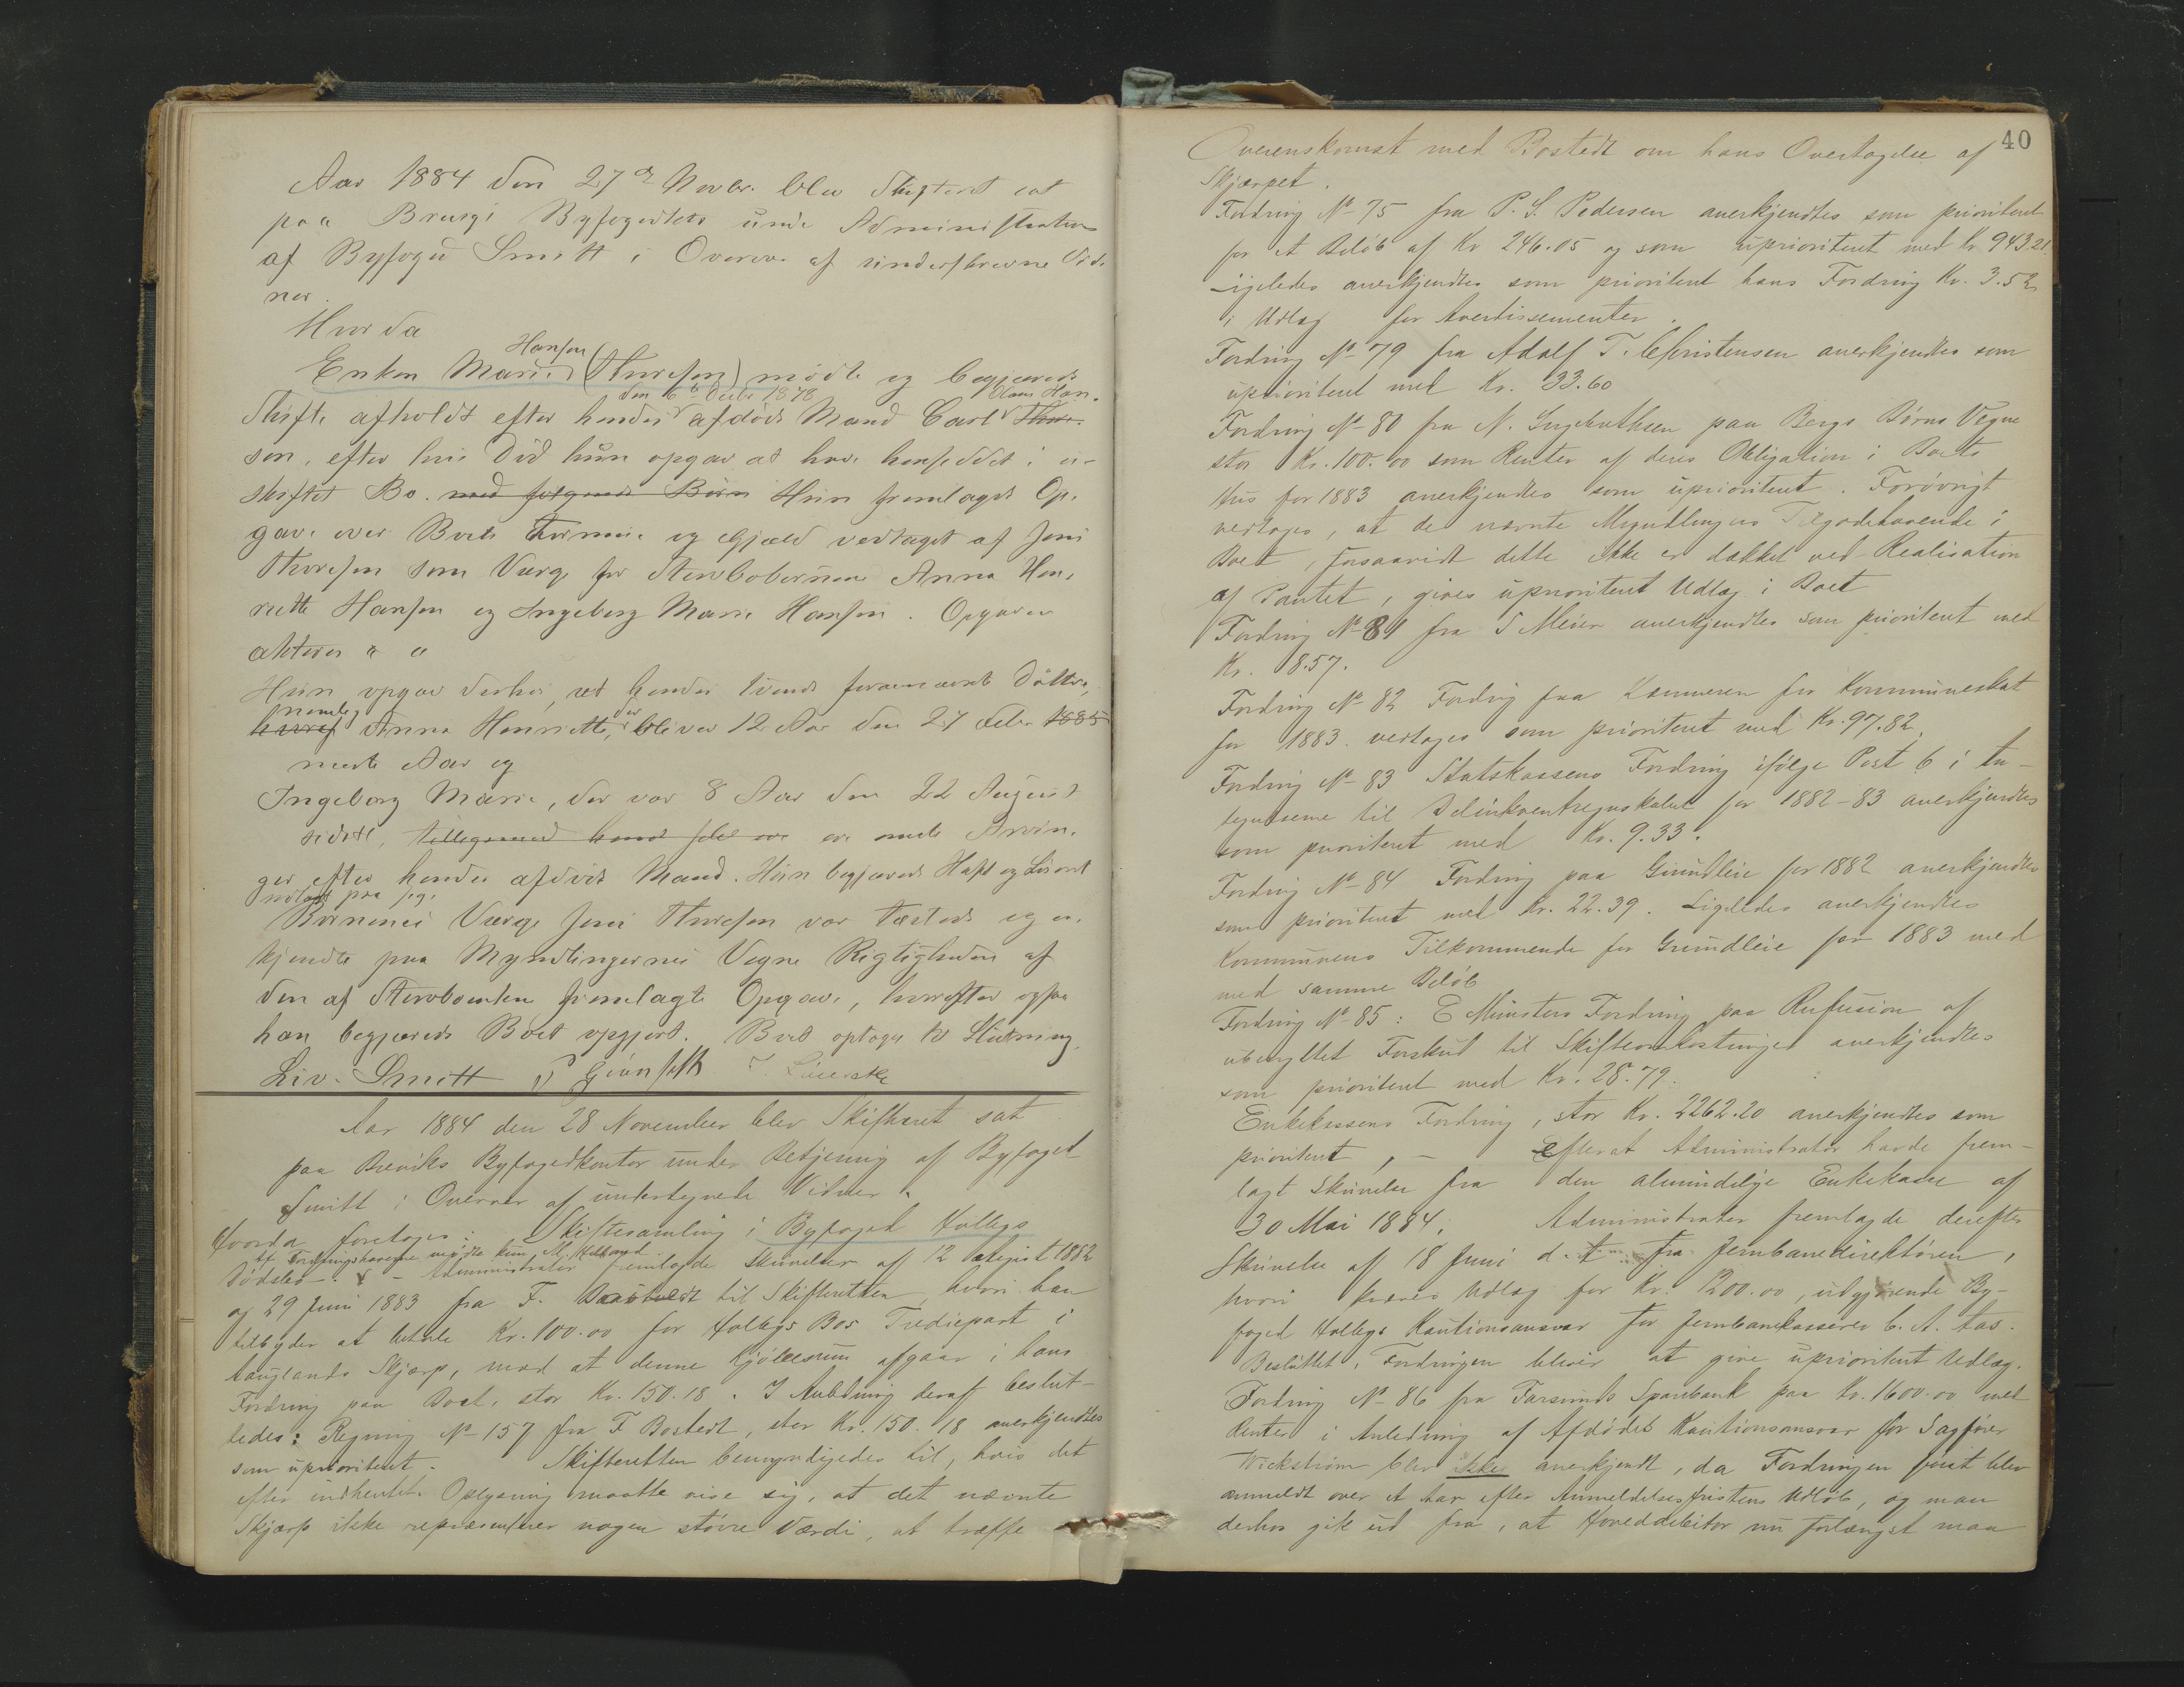 Aar 1884 den 27de Novbr. blev Skifteret sat
paa Brevigs Byfogedkto under Administration
af Byfoged Smitt i Overvær af underskrevne Vid-
ner.
Hvorda
Hansen
Enken Marie (Thoresen) mødte og begjærede
den 6te Decbr 1878 Olaus Han-
Skifte afholdt efter hendes afdøde Mand Carl Thor-
sen, efter hvis Død hun opgav at have hensiddet i u-
skiftet Bo. med følgende Børn Hun fremlagde Op-
gave over Boets Formue og Gjæld vedtaget af Jens
Thoresen som Værge for Stervbobørnene Anna Hen-
riette Hansen og Ingeborg Marie Hansen. Opgaven
akteres " "
Hun opgav derhos, at hendes tvende fornævnte Døttre,
nemlig der
hvoraf Anna Henriette, bliver 12 Aar den 27 Febr 1885
næste Aar og
Ingeborg Marie, der var 8 Aar den 22 August
sidstl, tilligemed hende selv ere ere eneste Arvin-
ger efter hendes afdøde Mand. Hun begjærede Hæft og Løsøret
udlagt paa sig.
Børnenes Værge Jens Thoresen var tilstede og er-
kjendte paa Myndlingernes Vegne Rigtigheden af
den af Stervboenken fremlagte Opgave, hvorefter ogsaa
han begjærede Boet opgjort. Boet optages til Slutning.
Liv. Smitt
Aar 1884 den 28 November blev Skifteret sat
paa Breviks Byfogedkontor under Betjening af Byfoged
Smitt i Overvær af undertegnede Vidner.
Hvorda foretoges: Skiftesamling i Byfoged Hollegs
Af Fordringshaverne mødte kun M.
Dødsbo – . – Administrator fremlagde Skrivelser af 12 August 1882
og 29 Juni 1883 fra F. Bostedt til Skifteretten, hvori han
tilbyder at betale Kr. 100.00 for Hollegs Bos Trediepart i
Skjærp, mod at denne Kjøbesum afgaar i hans
Fordring paa Boet, stor Kr. 150.18. I Anledning deraf beslut-
tedes: Regning No 157 fra F Bostedt, stor Kr. 150.18 anerkjendtes
som uprioriteret. Skifteretten bemyndigedes til, hvis det
efter indhentet Oplysning maatte vise sig, at det nævnte
Skjærp ikke repræsenterer nogen større Værdi, at træffe
40
Overenskomst med Bostedt om hans Overtagelse af
Skjærpet.
Fordring No 75 fra P. S. Pedersen anerkjendtes som prioriteret
for et Beløb af Kr 246.05 og som uprioriteret med Kr 943.21.
Ligeledes anerkjendtes som prioriteret hans Fordring Kr. 3.52
i Udlæg for Avertissementer.
Fordring No 79 fra Adolf T. Christensen anerkjendtes som
uprioriteret med Kr. 33.60
Fordring No 80 fra N. Ingebrethsen paa Bergs Børns Vegne
stor Kr. 100.00 som Renter af deres Obligation i Boets
Hus for 1883 anerkjendtes som uprioriteret. Forøvrigt
vedtoges, at de nævnte Myndlingers Tilgodehavende i
Boet, forsaavidt dette ikke er dækket ved Realisation
af Pantet, gives uprioriteret Udlæg i Boet
Fordring No 81 fra S Meier anerkjendtes som prioriteret med
Kr. 18.57.
Fordring No 82 Fordrig fra Kæmneren for Kommuneskat
for 1883. vedtoges som prioriteret med Kr. 97.82.
Fordring No 83 Statskassens Fordring ifølge Post 6 i An-
tegnelserne til Delinkventregnskabet for 1882-83 anerkjendtes
som prioriteret med Kr. 9.33.
Fordring No 84 Fordring paa Grundleie for 1882 anerkjendtes
som prioriteret med Kr. 22.39. Ligeledes anerkjendtes
Kommunens Tilkommende for Grundleie for 1883 med
med samme Beløb
Fordring No 85: E Münsters Fordring paa Refusion af
ubenyttet Forskud til Skifteomkostninger anerkjendtes
som prioriteret med Kr. 28.79.
Enkekassens Fordring, stor Kr. 2262.20 anerkjendtes som
prioriteret, – Efterat Administrator havde frem-
lagt Skrivelse fra den almindelige Enkekasse af
30 Mai 1884. Administrator fremlagde derefter
Skrivelse af 18 Juni d. A. fra Jernbanedirektøren,
hvori kræves Udlæg for Kr. 1200.00, udgjørende By-
foged Hollegs Kautionsansvar for Jernbanekasserer C. A. Aas.
Besluttet, Fordringen bliver at give uprioriteret Udlæg.
Fordring No 86 fra Farsunds Sparebank paa Kr. 1600.00 med
Renter i Anledning af Afdødes Kautionsansvar for Sagfører
Wickstrøm blev ikke anerkjendt, da Fordringen først blev
anmeldt over et Aar efter Anmeldelsesfristens Udløb, og man
derhos gik ud fra, at Hoveddebitor nu forlængst maa